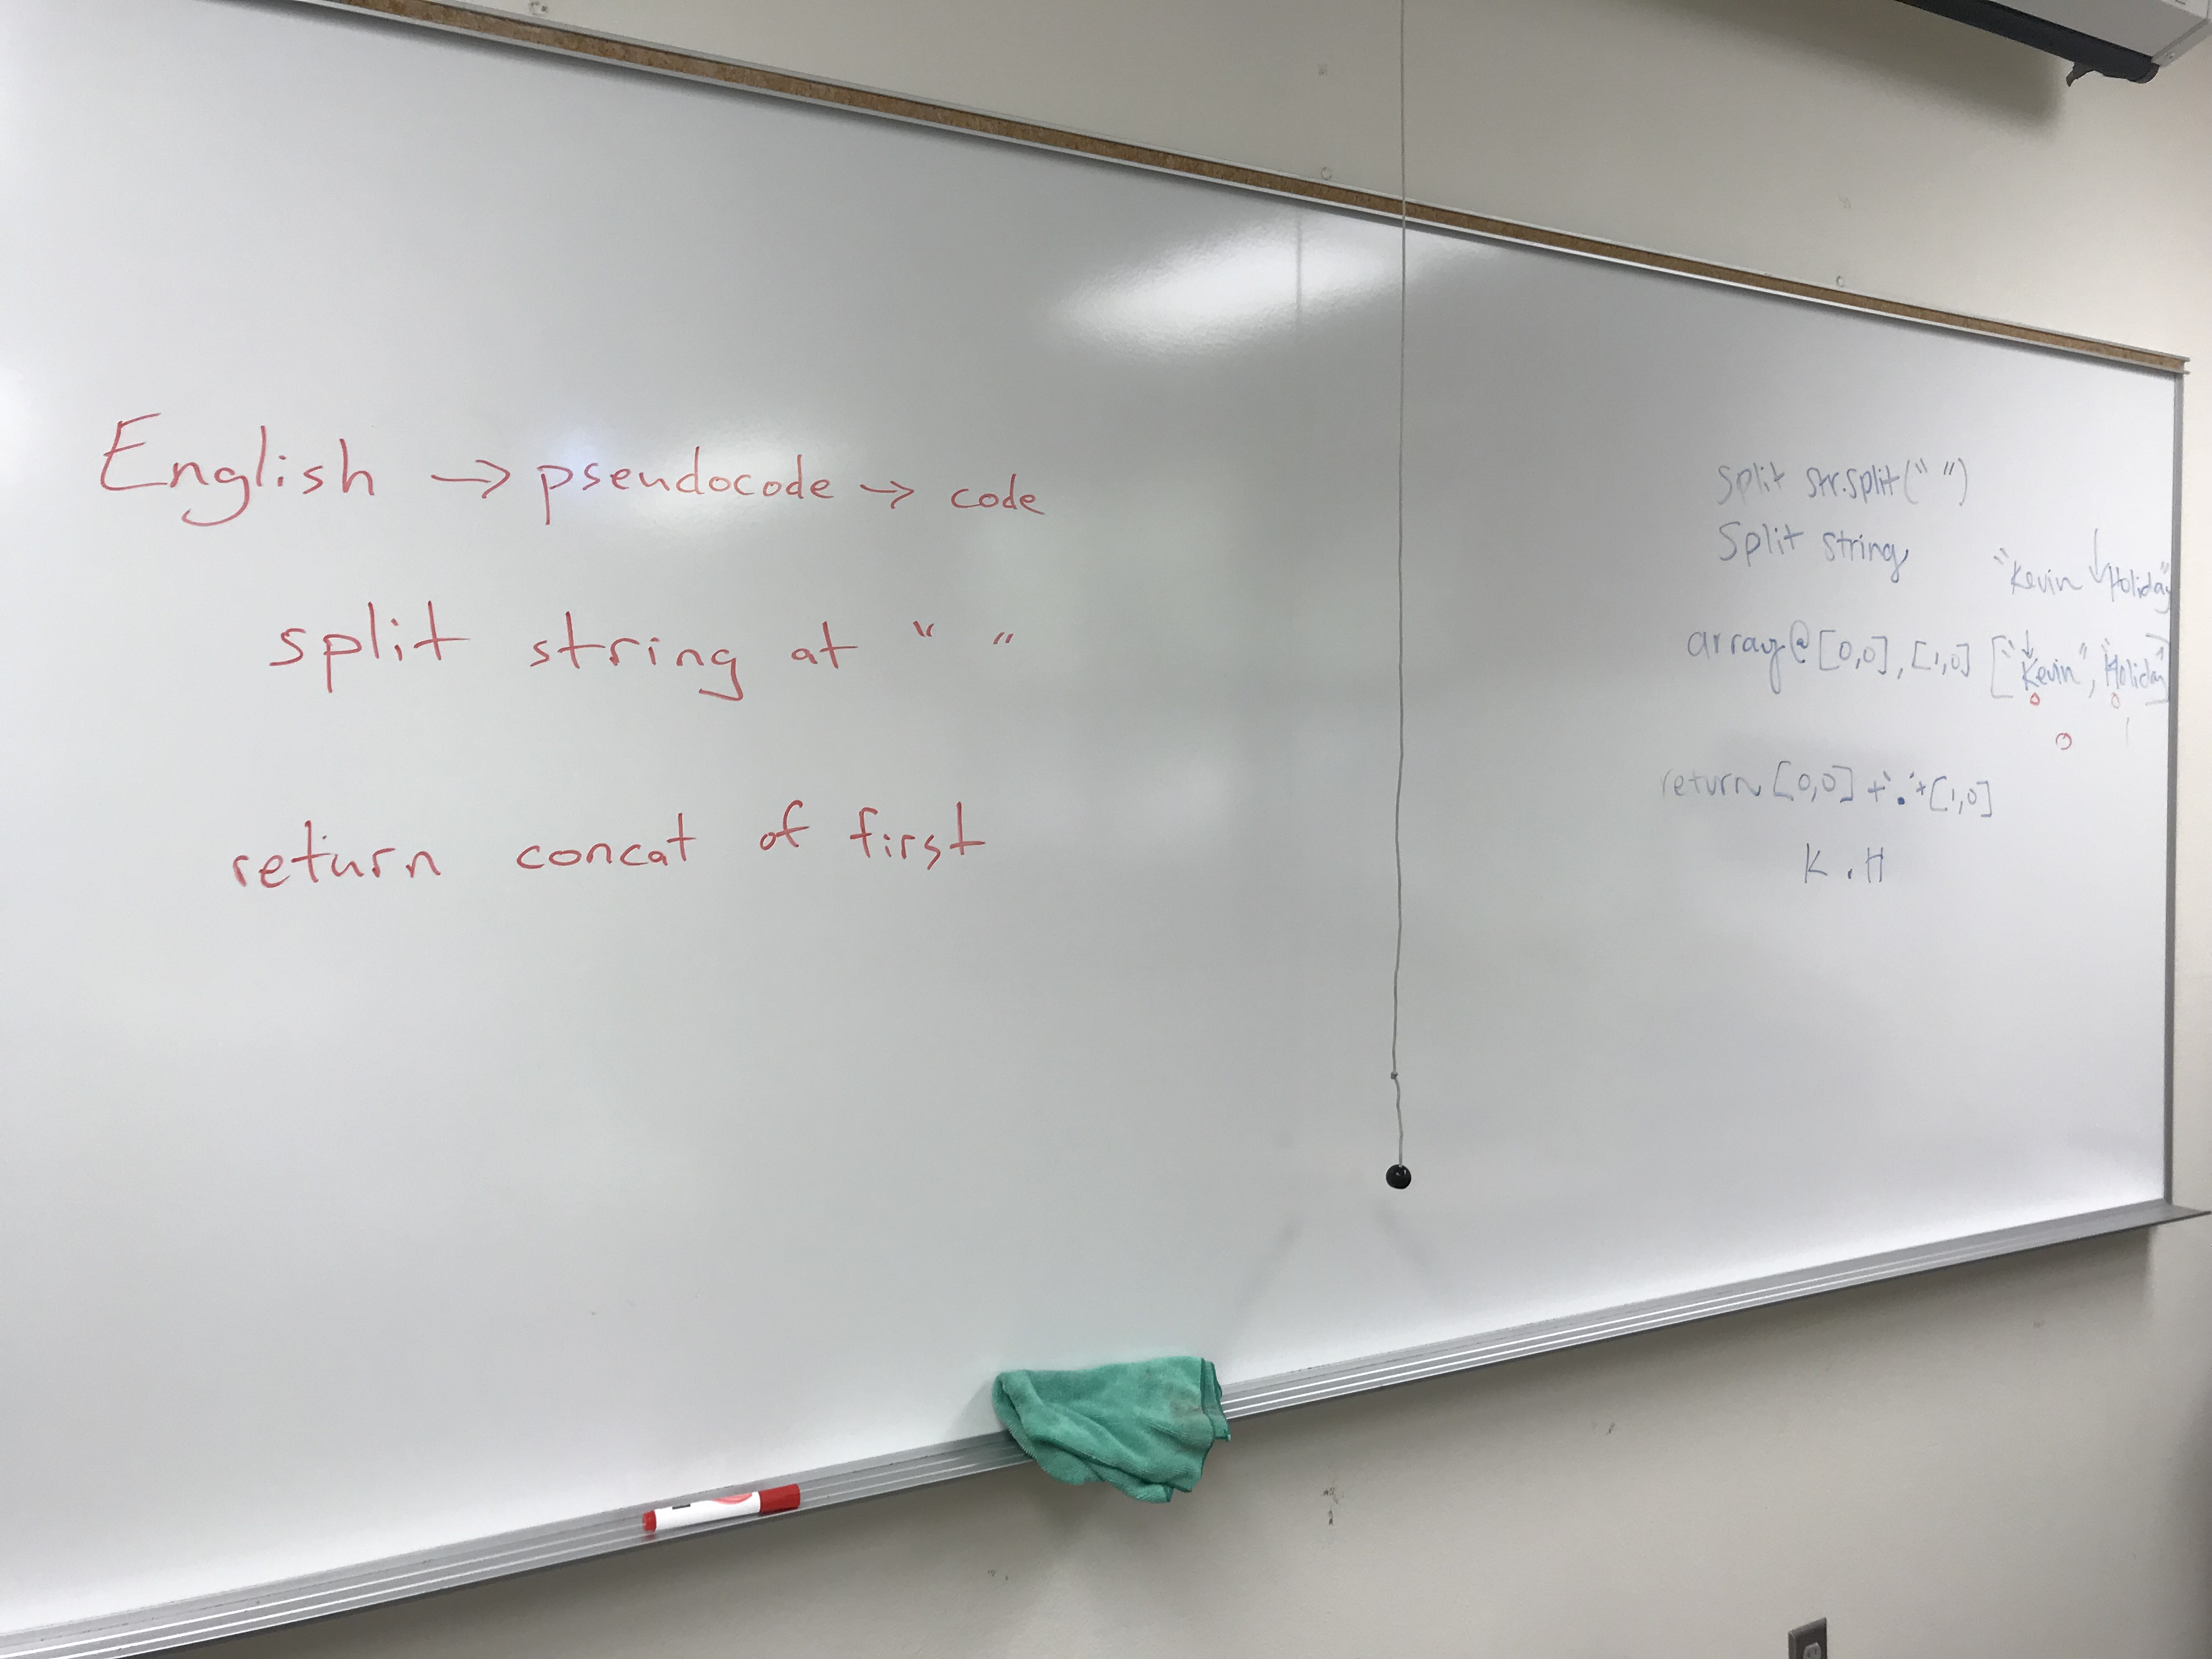 English → pseudocode → code
split string at " "
return concat of first
Split str.split(" ")
Split string
"Kevin Holiday"
array@[0,0],[1,0] ["Kevin", "Holiday"]
0 0
0 1
return [0,0] + "." + [1,0]
K . H